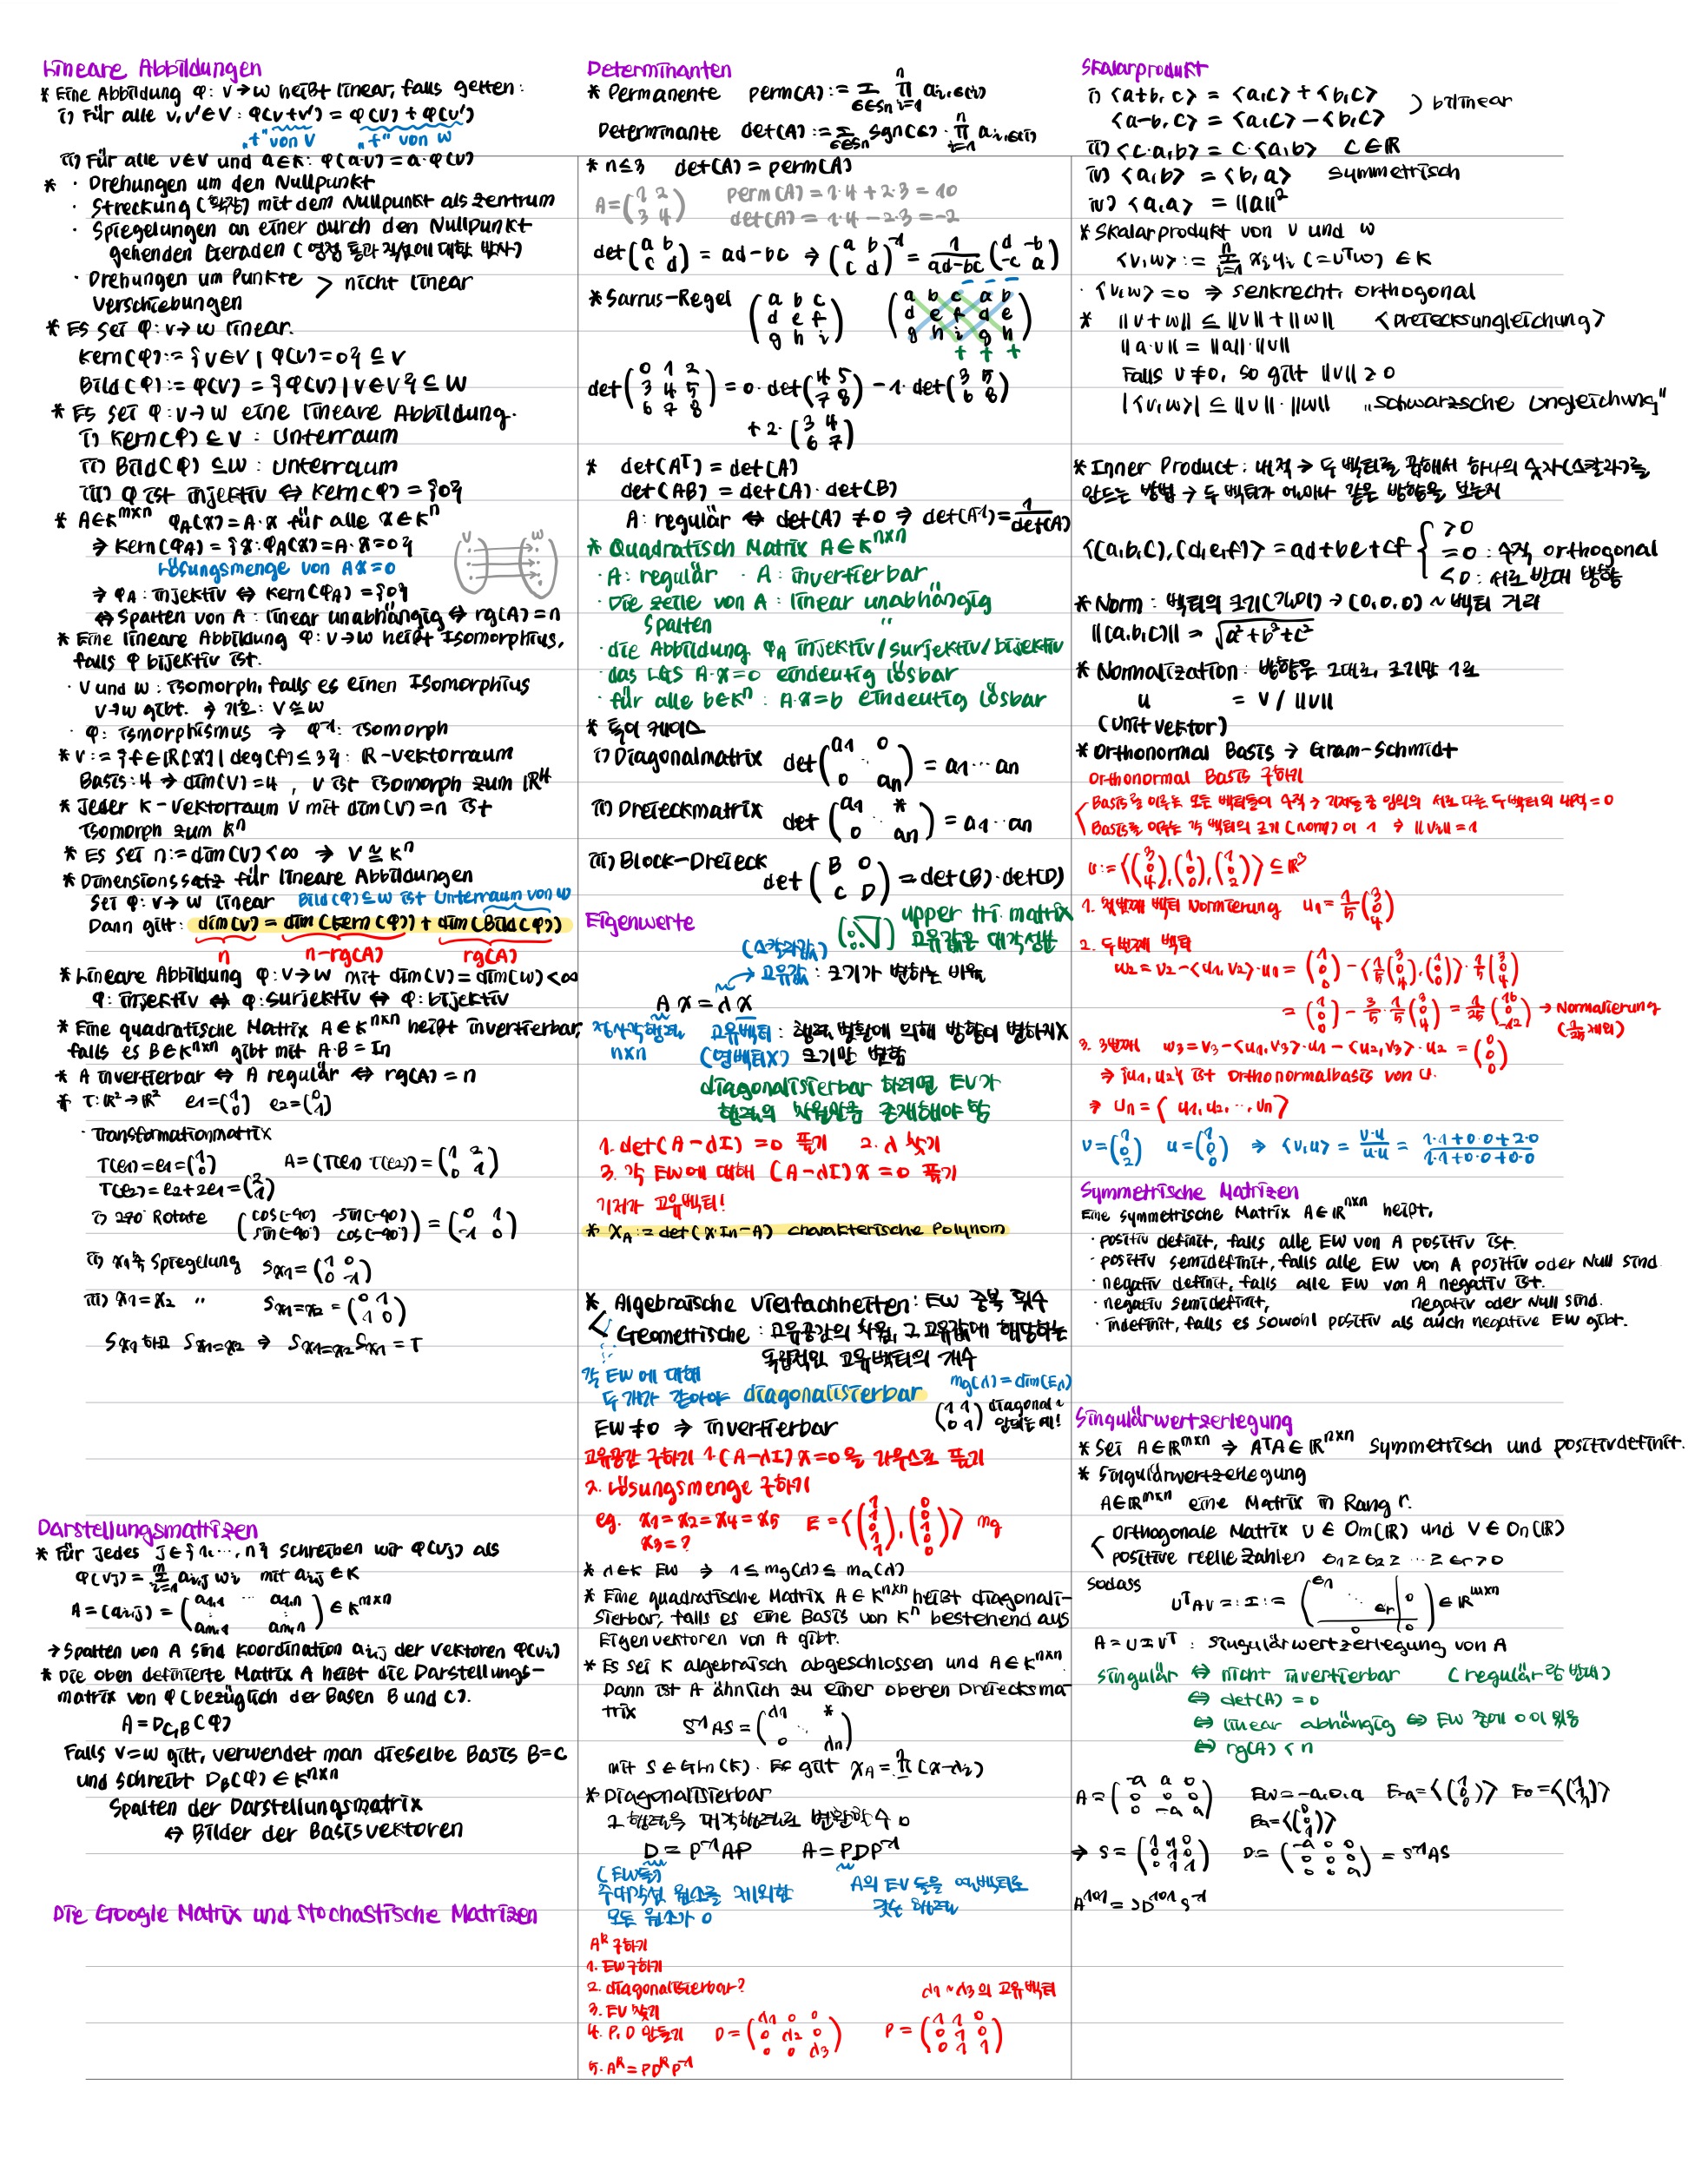 Lineare Abbildungen
* Eine Abbildung φ: V→W heißt linear, falls gelten:
i) Für alle v, v'∈V: φ(v+v') = φ(v) + φ(v')
„+" von V „+" von W
ii) Für alle v∈V und a∈K: φ(a·v) = a·φ(v)
* · Drehungen um den Nullpunkt
· Streckung (확장) mit dem Nullpunkt als Zentrum
· Spiegelungen an einer durch den Nullpunkt
gehenden Geraden (영점 통과 직선에 대한 반사)
· Drehungen um Punkte > nicht linear
Verschiebungen
* Es sei φ: V→W linear.
Kern(φ) := {v∈V | φ(v)=0} ⊆ V
Bild(φ) := φ(V) = {φ(v) | v∈V} ⊆ W
* Es sei φ: V→W eine lineare Abbildung.
i) Kern(φ) ⊆ V : Unterraum
ii) Bild(φ) ⊆ W : Unterraum
iii) φ ist injektiv ⇔ Kern(φ) = {0}
* A∈K^{m×n} φ_A(x) = A·x für alle x∈K^n
⇒ Kern(φ_A) = {x : φ_A(x) = A·x = 0}
Lösungsmenge von Ax=0
V W
⇒ φ_A : injektiv ⇔ Kern(φ_A) = {0}
⇔ Spalten von A : linear unabhängig ⇔ rg(A) = n
* Eine lineare Abbildung φ: V→W heißt Isomorphius,
falls φ bijektiv ist.
· V und W : isomorph, falls es einen Isomorphius
V→W gibt. ⇒ 기호: V ≅ W
· φ: isomorphismus ⇒ φ^{-1}: isomorph
* V := {f∈ℝ[x] | deg(f) ≤ 3} : ℝ-Vektorraum
Basis: 4 → dim(V) = 4 , V ist isomorph zum ℝ^4
* Jeder K-Vektorraum V mit dim(V) = n ist
isomorph zum K^n
* Es sei n := dim(V) < ∞ ⇒ V ≅ K^n
* Dimensionssatz für lineare Abbildungen
Sei φ: V→W linear Bild(φ) ⊆ W ist Unterraum von W
Dann gilt: dim(V) = dim(Kern(φ)) + dim(Bild(φ))
n n-rg(A) rg(A)
* Lineare Abbildung φ: V→W mit dim(V) = dim(W) < ∞
φ: injektiv ⇔ φ: surjektiv ⇔ φ: bijektiv
* Eine quadratische Matrix A∈K^{n×n} heißt invertierbar,
falls es B∈K^{n×n} gibt mit A·B = In
* A invertierbar ⇔ A regulär ⇔ rg(A) = n
* T: ℝ²→ℝ² e1 = (1 0) e2 = (0 1)
· Transformationmatrix
T(e1) = e1 = (1 0) A = (T(e1) T(e2)) = (1 2 / 0 1)
T(e2) = e2 + 2e1 = (2 1)
i) 270° Rotate (cos(-90°) -sin(-90°) / sin(-90°) cos(-90°)) = (0 1 / -1 0)
ii) x1축 Spiegelung S_{x1} = (1 0 / 0 -1)
iii) x1 = x2 〃 S_{x1=x2} = (0 1 / 1 0)
S_{x1} 하고 S_{x1=x2} ⇒ S_{x1=x2} S_{x1} = T
Darstellungsmatrizen
* Für jedes j∈{1, ..., n} schreiben wir φ(vj) als
φ(vj) = Σ_{i=1}^{m} a_{i,j} wi mit a_{i,j} ∈ K
A = (a_{i,j}) = (a_{1,1} ... a_{1,n} / a_{m,1} a_{m,n}) ∈ K^{m×n}
→ Spalten von A sind Koordination a_{i,j} der Vektoren φ(vi)
* Die oben definierte Matrix A heißt die Darstellungs-
matrix von φ (bezüglich der Basen B und C).
A = D_{C,B}(φ)
Falls V=W gilt, verwendet man dieselbe Basis B=C
und schreibt D_B(φ) ∈ K^{n×n}
Spalten der Darstellungsmatrix
⇔ Bilder der Basisvektoren
Die Google Matrix und stochastische Matrizen
Determinanten
* Permanente perm(A) := Σ_{σ∈Sn} Π_{i=1}^{n} a_{i,σ(i)}
Determinante det(A) := Σ_{σ∈Sn} sgn(σ) · Π_{i=1}^{n} a_{i,σ(i)}
* n≤3 det(A) = perm(A)
A = (1 2 / 3 4) perm(A) = 1·4 + 2·3 = 10
det(A) = 1·4 - 2·3 = -2
det(a b / c d) = ad-bc ⇒ (a b / c d)^{-1} = 1/(ad-bc) (d -b / -c a)
* Sarrus-Regel (a b c / d e f / g h i) (a b c a b / d e f d e / g h i g h)
- - -
+ + +
det(0 1 2 / 3 4 5 / 6 7 8) = 0·det(4 5 / 7 8) - 1·det(3 5 / 6 8)
+ 2·(3 4 / 6 7)
* det(A^T) = det(A)
det(AB) = det(A)·det(B)
A: regulär ⇔ det(A) ≠ 0 ⇒ det(A^{-1}) = 1/det(A)
* Quadratisch Matrix A∈K^{n×n}
· A: regulär · A: invertierbar
· Die Zeile von A : linear unabhängig
Spalten 〃
· die Abbildung φ_A injektiv/surjektiv/bijektiv
· das LGS A·x=0 eindeutig lösbar
· für alle b∈K^n : A·x=b eindeutig lösbar
* 특이 케이스
i) Diagonalmatrix det(a1 0 / 0 an) = a1 ··· an
ii) Dreieckmatrix det(a1 * / 0 an) = a1 ·· an
iii) Block-Dreieck det(B 0 / C D) = det(B)·det(D)
Eigenwerte
upper tri. matrix
고유값은 대각성분
(스칼라값)
고유값 : 크기가 변하는 비율
A x = λ x
정사각행렬 고유벡터 : 행렬 변환에 의해 방향이 변하지X
n×n (영벡터X) 크기만 변함
diagonalisierbar 하려면 EV가
행렬의 차원만큼 존재해야 함
1. det(A-λI) = 0 풀기 2. λ 찾기
3. 각 EW에 대해 (A-λI)x = 0 풀기
기저가 고유벡터!
* χ_A := det(x·In - A) charakterische Polynom
* Algebraische Vielfachheiten : EW 중복 횟수
Geometrische : 고유공간의 차원, 그 고유값에 해당하는
독립적인 고유벡터의 개수
각 EW에 대해 mg(λ) = dim(E_λ)
두 개가 같아야 diagonalisierbar
(1 1 / 0 1) diagonal~ 안되는 예!
EW≠0 ⇒ invertierbar
고유공간 구하기 1. (A-λI)x = 0 을 가우스로 풀기
2. Lösungsmenge 구하기
eg. x1 = x2 = x4 = x5 E = ⟨(1 1 0 1 1), (0 0 1 0 0)⟩ mg
x3 = ?
* λ∈K EW ⇒ 1 ≤ mg(λ) ≤ ma(λ)
* Eine quadratische Matrix A∈K^{n×n} heißt diagonali-
sierbar, falls es eine Basis von K^n bestehend aus
Eigenvektoren von A gibt.
* Es sei K algebraisch abgeschlossen und A∈K^{n×n}.
Dann ist A ähnlich zu einer oberen Dreiecksma
trix
S^{-1}AS = (λ1 * / 0 λn)
mit S∈Gln(K). Es gilt χ_A = Π(x-λi)
* Diagonalisierbar
그 행렬을 대각행렬로 변환할 수 o
D = P^{-1}AP A = PDP^{-1}
(EW들) A의 EV 들을 열벡터로
주대각선 원소를 제외한 갖는 행렬
모든 원소가 0
A^k 구하기
1. EW구하기
2. diagonalisierbar? λ1 ~ λ3의 고유벡터
3. EV 찾기
4. P, D 만들기 D = (λ1 0 0 / 0 λ2 0 / 0 0 λ3) P = (1 1 0 / 0 1 0 / 0 1 1)
5. A^k = PD^kP^{-1}
Skalarprodukt
i) ⟨a+b, c⟩ = ⟨a,c⟩ + ⟨b,c⟩ ) bilinear
⟨a-b, c⟩ = ⟨a,c⟩ - ⟨b,c⟩
ii) ⟨c·a, b⟩ = c·⟨a,b⟩ c∈ℝ
iii) ⟨a,b⟩ = ⟨b,a⟩ symmetrisch
iv) ⟨a,a⟩ = ||a||²
* Skalarprodukt von v und w
⟨v,w⟩ := Σ_{i=1}^{n} xi yi (= v^T w) ∈ K
· ⟨v,w⟩ = 0 ⇒ senkrecht, orthogonal
* ||v+w|| ≤ ||v|| + ||w|| <Dreiecksungleichung>
||a·v|| = ||a||·||v||
Falls v≠0, so gilt ||v|| ≥ 0
|⟨v,w⟩| ≤ ||v||·||w|| „Schwarzsche Ungleichung"
* Inner Product : 내적 → 두 벡터를 곱해서 하나의 숫자(스칼라)를
만드는 방법 → 두 벡터가 얼마나 같은 방향을 보는지
⟨(a,b,c), (d,e,f)⟩ = ad+be+cf { >0
=0 : 수직 orthogonal
<0 : 서로 반대 방향
* Norm : 벡터의 크기(길이) → (0,0,0) ~ 벡터 거리
||(a,b,c)|| = √(a²+b²+c²)
* Normalization : 방향은 그대로, 크기만 1로
u = v / ||v||
(unit vektor)
* Orthonormal Basis → Gram-Schmidt
Orthonormal Basis 구하기
Basis를 이루는 모든 벡터들이 수직 → 기저들 중 임의의 서로 다른 두 벡터의 내적 = 0
Basis를 이루는 각 벡터의 크기 (norm)이 1 ⇒ ||Vi|| = 1
U := ⟨(3 0 4), (1 0 0), (1 0 2)⟩ ⊆ ℝ³
1. 첫번째 벡터 Normierung u1 = 1/5 (3 0 4)
2. 두번째 벡터
w2 = v2 - ⟨u1, v2⟩·u1 = (1 0 0) - ⟨1/5 (3 0 4), (1 0 0)⟩·1/5 (3 0 4)
= (1 0 0) - 3/5·1/5 (3 0 4) = 1/25 (16 0 -12) → Normalierung
(1/25 제외)
3. 3번째 w3 = v3 - ⟨u1, v3⟩·u1 - ⟨u2, v3⟩·u2 = (0 0 0)
⇒ {u1, u2} ist Orthonormalbasis von U.
⇒ Un = ⟨u1, u2, ..., un⟩
v = (1 0 2) u = (1 0 0) ⇒ ⟨v,u⟩ = v·u / u·u = 1·1+0·0+2·0 / 1·1+0·0+0·0
Symmetrische Matrizen
Eine symmetrische Matrix A∈ℝ^{n×n} heißt,
· positiv definit, falls alle EW von A positiv ist.
· positiv semidefinit, falls alle EW von A positiv oder Null sind.
· negativ definit, falls alle EW von A negativ ist.
· negativ semidefinit, negativ oder Null sind.
· indefinit, falls es sowohl positiv als auch negative EW gibt.
Singulärwertzerlegung
* Sei A∈ℝ^{m×n} ⇒ A^TA∈ℝ^{n×n} symmetrisch und positivdefinit.
* Singulärwertzerlegung
A∈ℝ^{m×n} eine Matrix in Rang r.
Orthogonale Matrix U ∈ Om(ℝ) und V ∈ On(ℝ)
positive reelle Zahlen σ1 ≥ σ2 ≥ ... ≥ σr > 0
sodass
U^TAV =: Σ := (σ1 ... σr 0 / 0 0) ∈ ℝ^{m×n}
A = UΣV^T : Singulärwertzerlegung von A
singulär ⇔ nicht invertierbar (regulär랑 반대)
⇔ det(A) = 0
⇔ linear abhängig ⇔ EW 중에 0이 있음
⇔ rg(A) < n
A = (-a a 0 / 0 0 0 / 0 -a a) EW = -a, 0, a E-a = ⟨(1 0 0)⟩ E0 = ⟨(1 1 1)⟩
Ea = ⟨(0 0 1)⟩
→ S = (1 1 0 / 0 1 0 / 0 1 1) D = (-a 0 0 / 0 0 0 / 0 0 a) = S^{-1}AS
A^{101} = SD^{101}S^{-1}